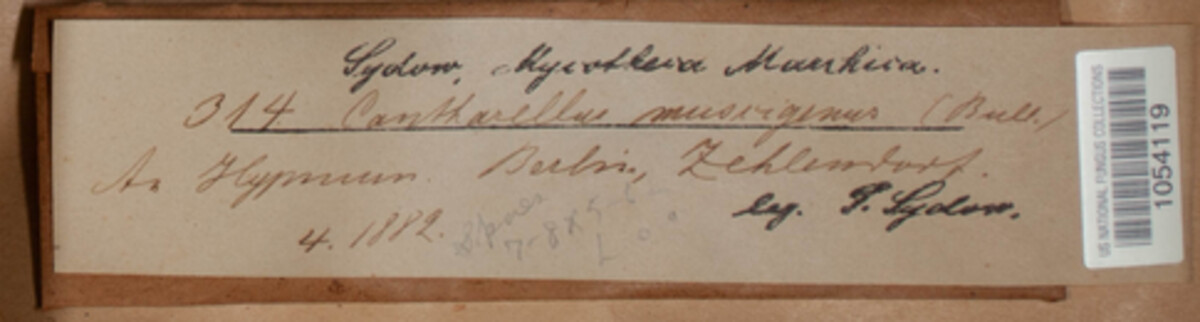 Sydow, Mycotheca Marchica.
314 Cantharellus muscigenus (Bull.)
An Hypnum. Berlin, Zehlendorf.
leg. P. Sydow.
4. 1882.
Spores
7-8 x 5-6
US NATIONAL FUNGUS COLLECTIONS
1054119